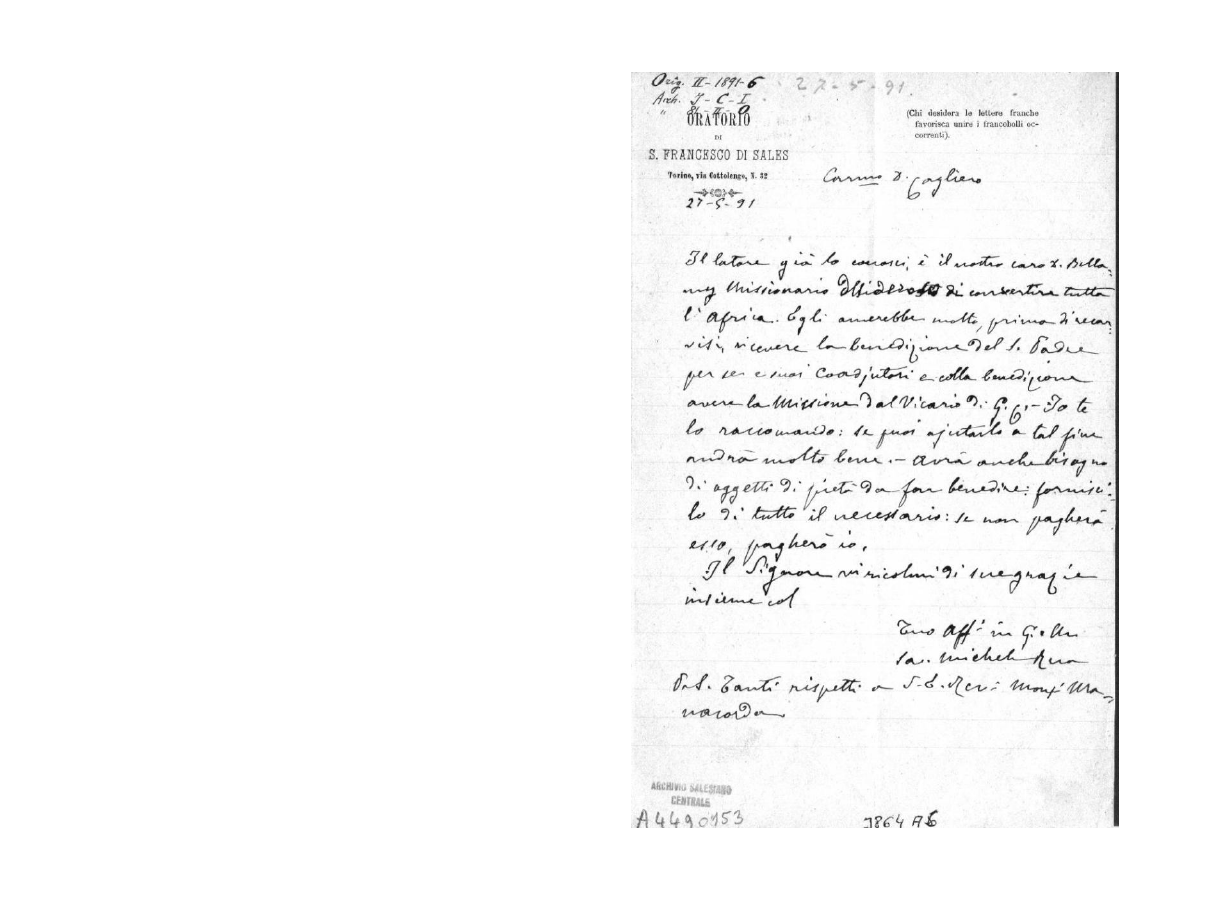 Orig. II - 1891 - 6
27-5-91.
Arch. I - C - I
" II -
ORATORIO
DI
S. FRANCESCO DI SALES
Torino, via Cottolengo, N. 32
27-5-91
(Chi desidera le lettere franche
favorisca unire i francobolli oc-
correnti).
Car.mo D. Cagliero
Il latore già lo conosci, è il nostro caro D. Bella-
my Missionario desideroso di convertire tutta
l'Africa. Egli amerebbe molto, prima di recar-
visi, ricevere la benedizione del S. Padre
per se e suoi coadjutori e colla benedizione
avere la Missione dal Vicario di G. C. - Io te
lo raccomando: se puoi ajutarlo a tal fine
andrà molto bene. - Avrà anche bisogno
di oggetti di pietà da far benedire: fornisci-
lo di tutto il necessario: se non pagherà
esso, pagherò io.
Il Signore vi ricolmi di sue grazie
insieme col
Tuo Aff.o in G. e M.
Sac. Michele Rua
P.S. Tanti rispetti a S. E. Rev.ma Mons. Ma-
nacorda
ARCHIVIO SALESIANO
CENTRALE
A4490153
3864 A6